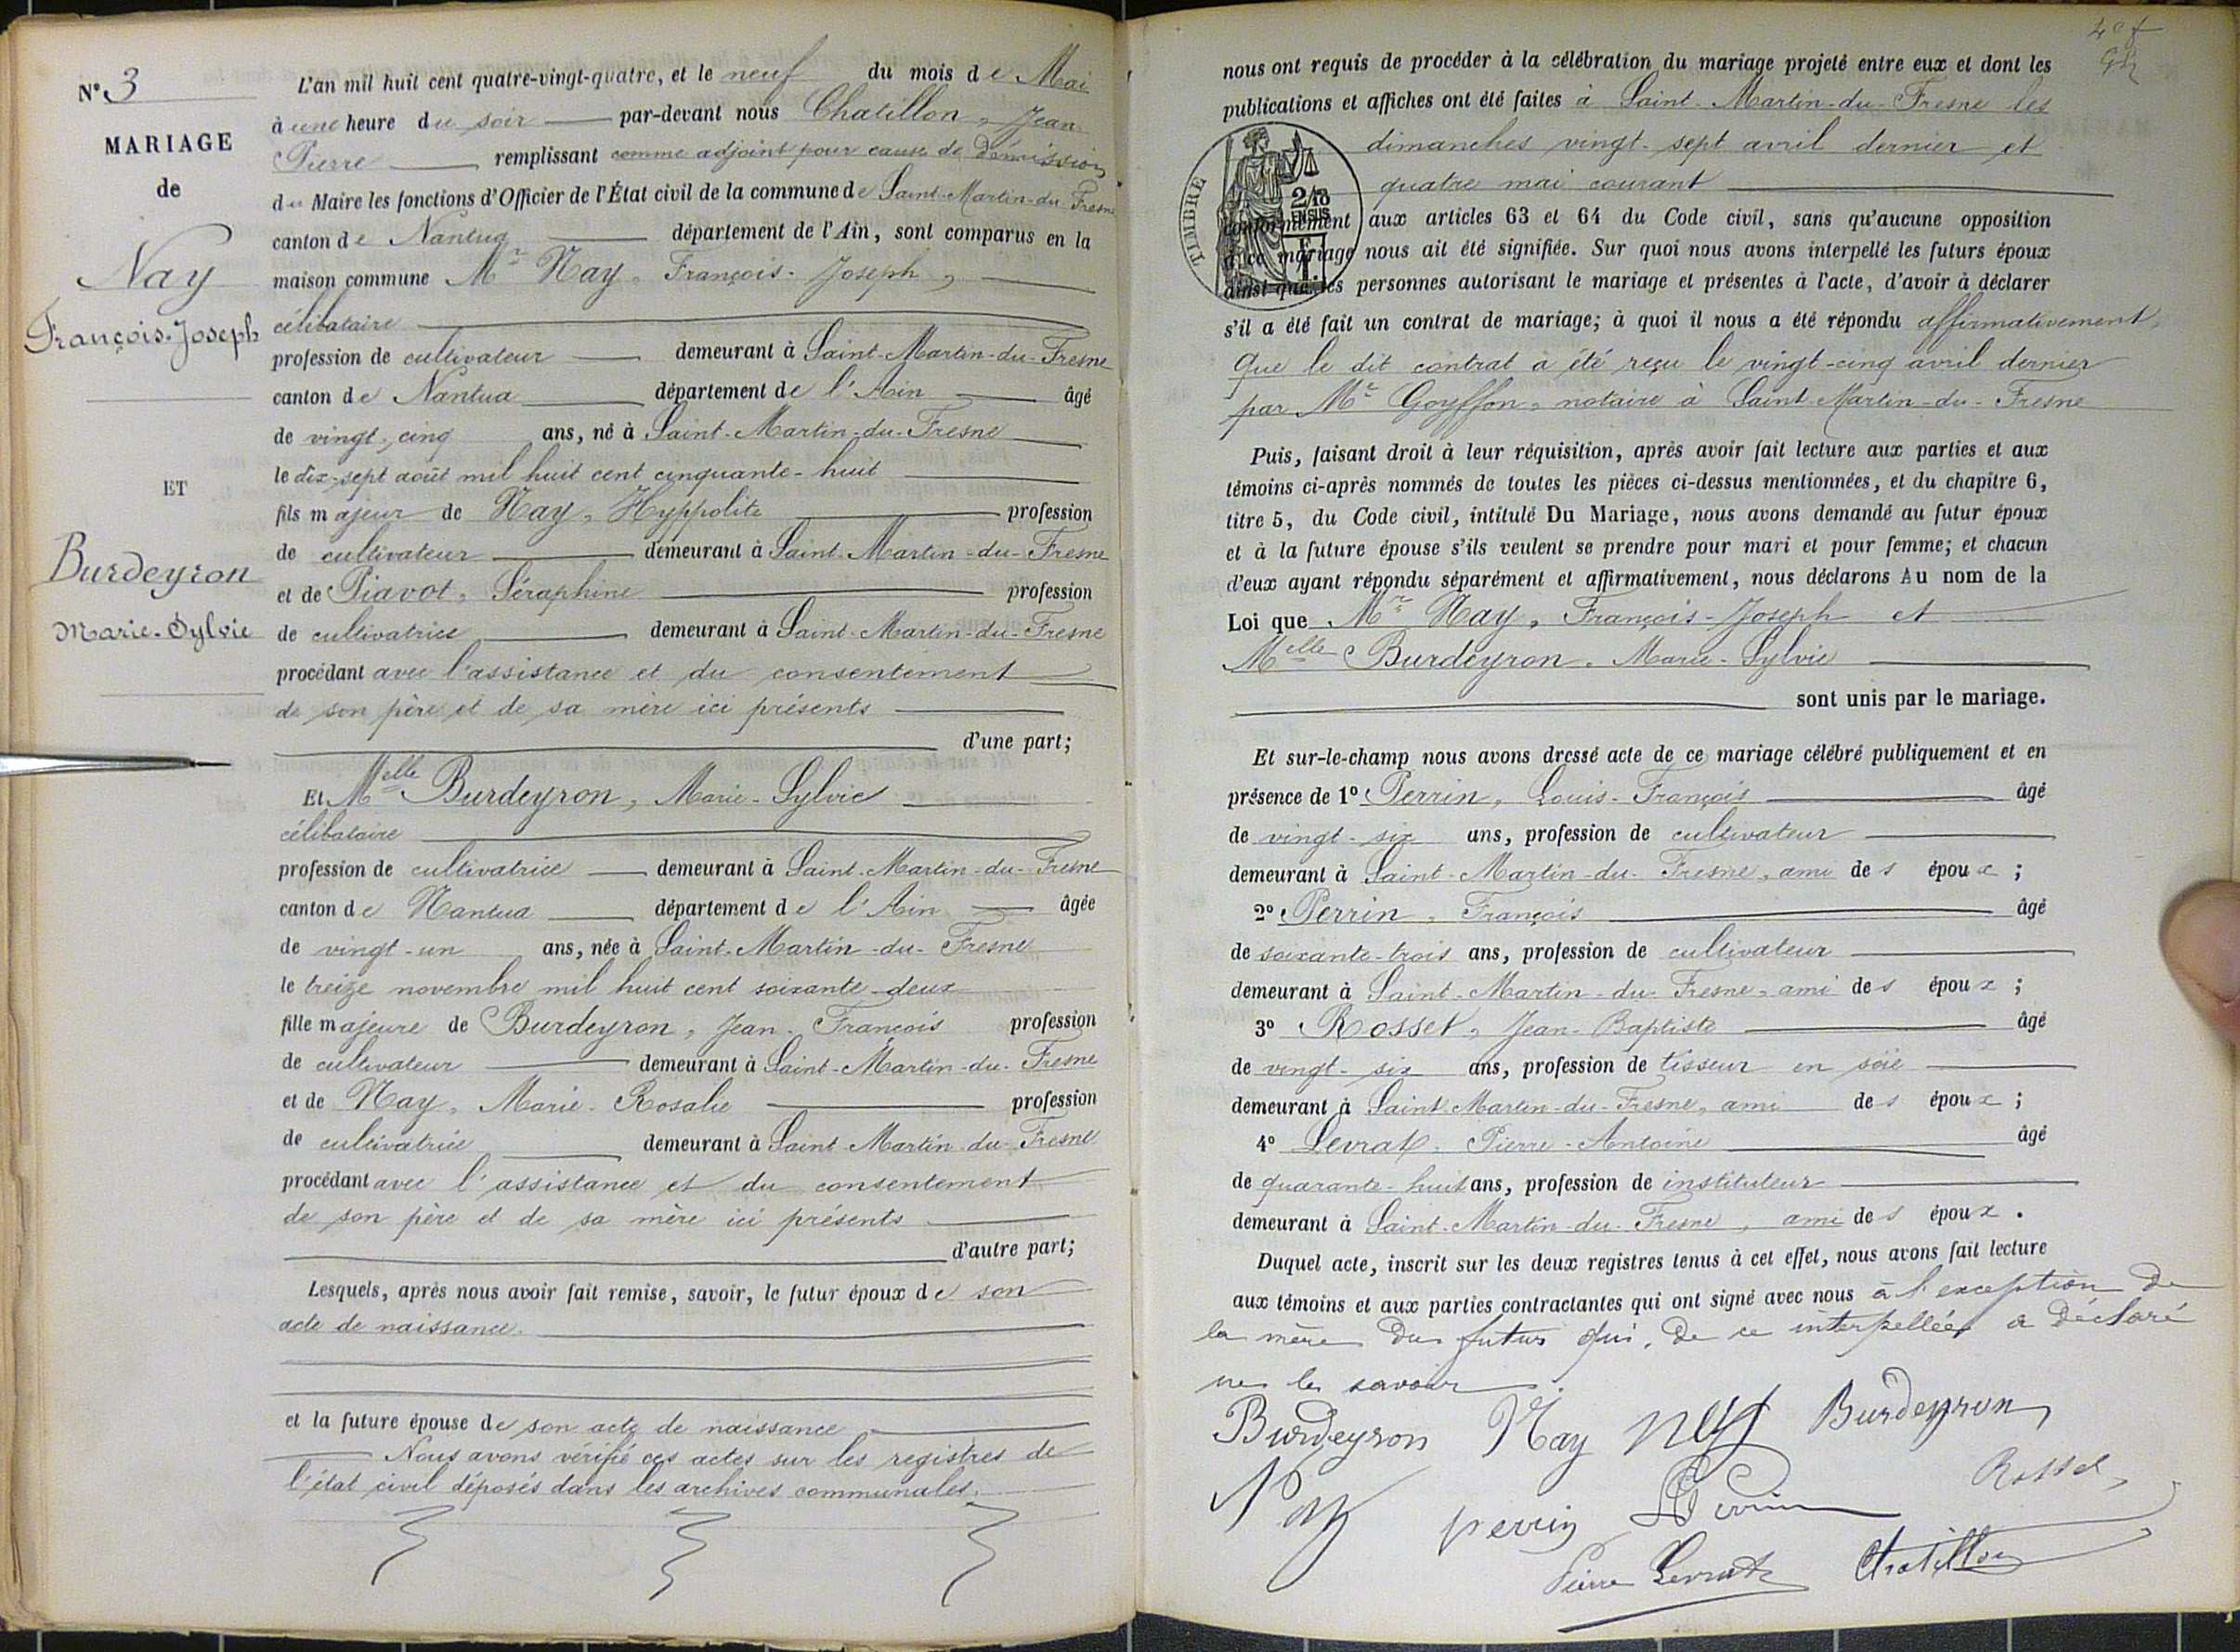 N° 3
MARIAGE
de
Nay
François-Joseph
ET
Burdeyron
Marie-Sylvie
L'an mil huit cent quatre-vingt-quatre, et le neuf du mois de Mai
à une heure du soir par-devant nous Chatillon, Jean
Pierre remplissant comme adjoint pour cause de Démission
du Maire les fonctions d'Officier de l'État civil de la commune de Saint-Martin-du-Fresne
canton de Nantua département de l'Ain, sont comparus en la
maison commune Mr Nay, François-Joseph,
célibataire
profession de cultivateur demeurant à Saint-Martin-du-Fresne
canton de Nantua département de l'Ain âgé
de vingt-cinq ans, né à Saint-Martin-du-Fresne
le dix-sept août mil huit cent cinquante-huit
fils majeur de Nay, Hyppolite profession
de cultivateur demeurant à Saint-Martin-du-Fresne
et de Piavot, Séraphine profession
de cultivatrice demeurant à Saint-Martin-du-Fresne
procédant avec l'assistance et du consentement
de son père et de sa mère ici présents
d'une part;
Et Melle Burdeyron, Marie-Sylvie
célibataire
profession de cultivatrice demeurant à Saint-Martin-du-Fresne
canton de Nantua département de l'Ain âgée
de vingt-un ans, née à Saint-Martin-du-Fresne
le treize novembre mil huit cent soixante-deux
fille majeure de Burdeyron, Jean-François profession
de cultivateur demeurant à Saint-Martin-du-Fresne
et de Nay, Marie-Rosalie profession
de cultivatrice demeurant à Saint-Martin-du-Fresne
procédant avec l'assistance et du consentement
de son père et de sa mère ici présents
d'autre part;
Lesquels, après nous avoir fait remise, savoir, le futur époux de son
acte de naissance.
et la future épouse de son acte de naissance
Nous avons vérifié ces actes sur les registres de
l'état civil déposés dans les archives communales.
nous ont requis de procéder à la célébration du mariage projeté entre eux et dont les
publications et affiches ont été faites à Saint-Martin-du-Fresne les
dimanches vingt-sept avril dernier et
quatre mai courant
TIMBRE
conformément aux articles 63 et 64 du Code civil, sans qu'aucune opposition
à ce mariage nous ait été signifiée. Sur quoi nous avons interpellé les futurs époux
ainsi que les personnes autorisant le mariage et présentes à l'acte, d'avoir à déclarer
s'il a été fait un contrat de mariage; à quoi il nous a été répondu affirmativement,
Que le dit contrat a été reçu le vingt-cinq avril dernier
par Me Goyffon, notaire à Saint-Martin-du-Fresne
Puis, faisant droit à leur réquisition, après avoir fait lecture aux parties et aux
témoins ci-après nommés de toutes les pièces ci-dessus mentionnées, et du chapitre 6,
titre 5, du Code civil, intitulé Du Mariage, nous avons demandé au futur époux
et à la future épouse s'ils veulent se prendre pour mari et pour femme; et chacun
d'eux ayant répondu séparément et affirmativement, nous déclarons Au nom de la
Loi que Mr Nay, François-Joseph et
Melle Burdeyron, Marie-Sylvie
sont unis par le mariage.
Et sur-le-champ nous avons dressé acte de ce mariage célébré publiquement et en
présence de 1° Perrin, Louis-François âgé
de vingt-six ans, profession de cultivateur
demeurant à Saint-Martin-du-Fresne, ami des époux;
2° Perrin, François âgé
de soixante-trois ans, profession de cultivateur
demeurant à Saint-Martin-du-Fresne, ami des époux;
3° Rosset, Jean-Baptiste âgé
de vingt-six ans, profession de tisseur en soie
demeurant à Saint-Martin-du-Fresne, ami des époux;
4° Levrat, Pierre-Antoine âgé
de quarante-huit ans, profession de instituteur
demeurant à Saint-Martin-du-Fresne, ami des époux.
Duquel acte, inscrit sur les deux registres tenus à cet effet, nous avons fait lecture
aux témoins et aux parties contractantes qui ont signé avec nous à l'exception de
la mère du futur qui, de ce interpellée, a déclaré
ne le savoir.
Burdeyron Nay Nay Burdeyron
Nay perrin Perrin Rosset
Pierre Levrat Chatillon